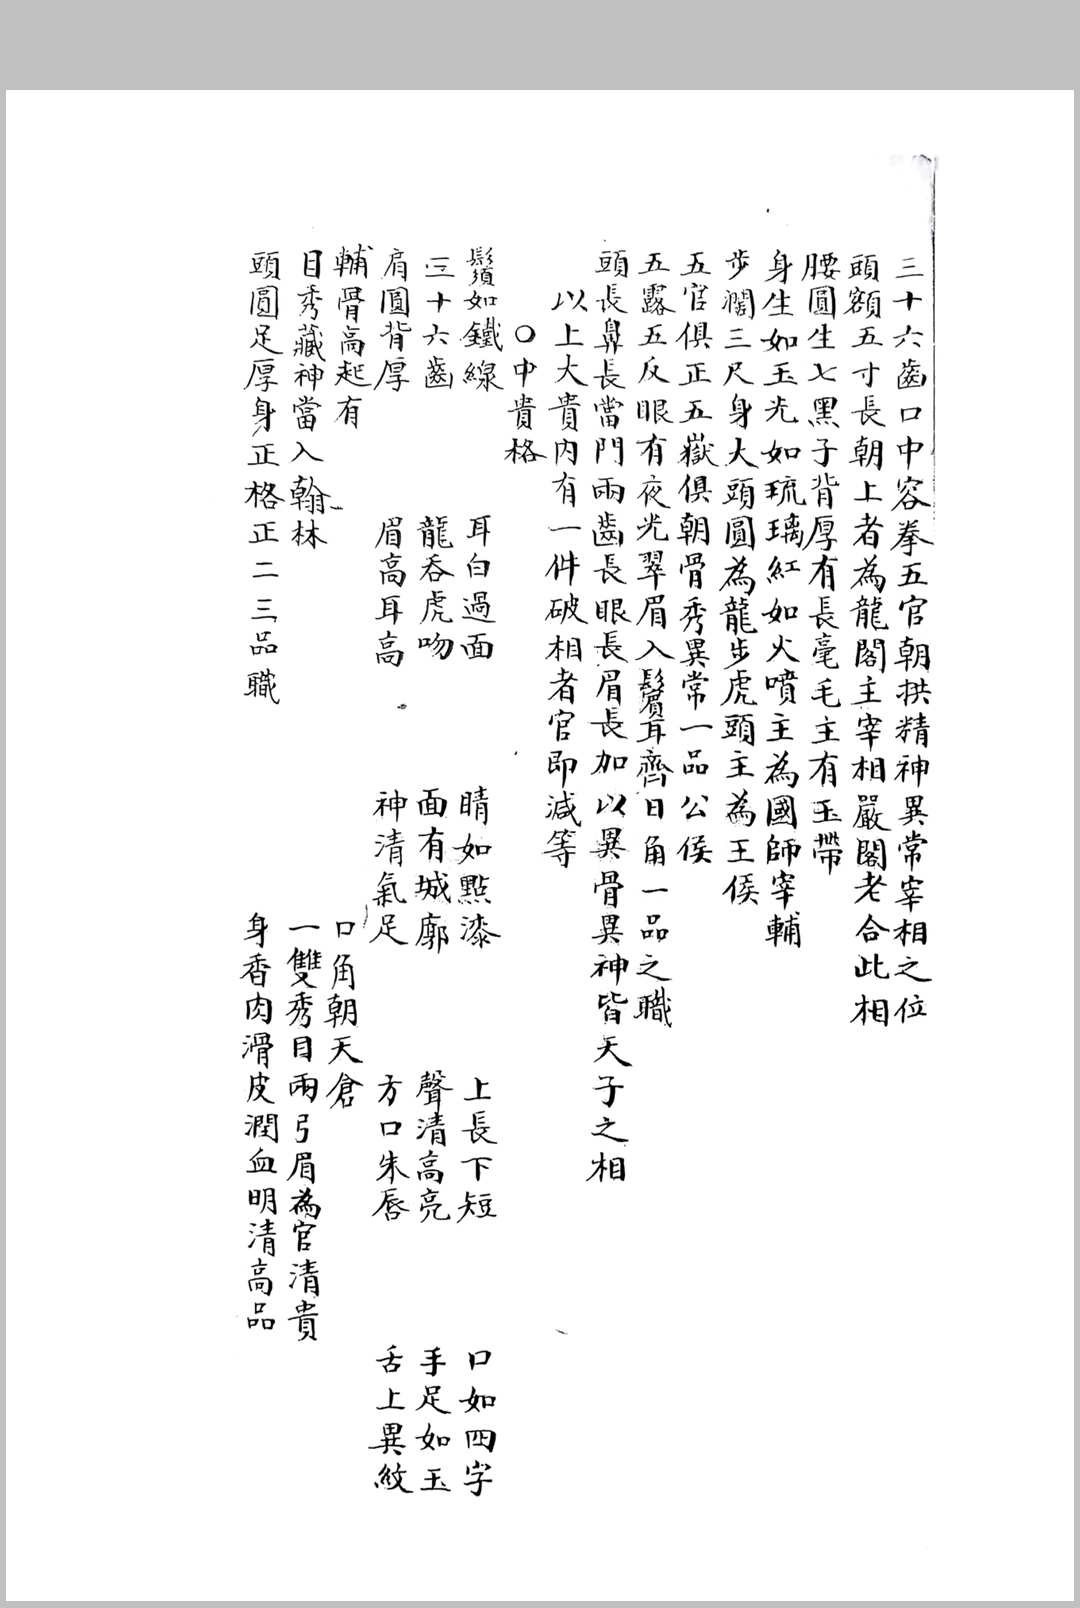 三十六齒口中容拳五官朝拱精神異常宰相之位
頭額五寸長朝上者為龍閣主宰相嚴閣老合此相
腰圓生七黑子背厚有長毫毛主有玉帶
身生如玉光如琉璃紅如火噴主為國師宰輔
步濶三尺身大頭圓為龍步虎頭主為王侯
五官俱正五嶽俱朝骨秀異常一品公侯
五露五反眼有夜光翠眉入鬢耳齊日角一品之職
頭長鼻長當門兩齒長眼長眉長加以異骨異神皆天子之相
以上大貴內有一件破相者官即減等
○中貴格
鬚如鐵線 耳白過面 睛如點漆 上長下短 口如四字
三十六齒 龍吞虎吻 面有城廓 聲清高亮 手足如玉
肩圓背厚 眉高耳高 神清氣足 方口朱唇 舌上異紋
輔骨高起有 口角朝天倉
目秀藏神當入翰林 一雙秀目兩弓眉為官清貴
頭圓足厚身正格正二三品職 身香肉滑皮潤血明清高品